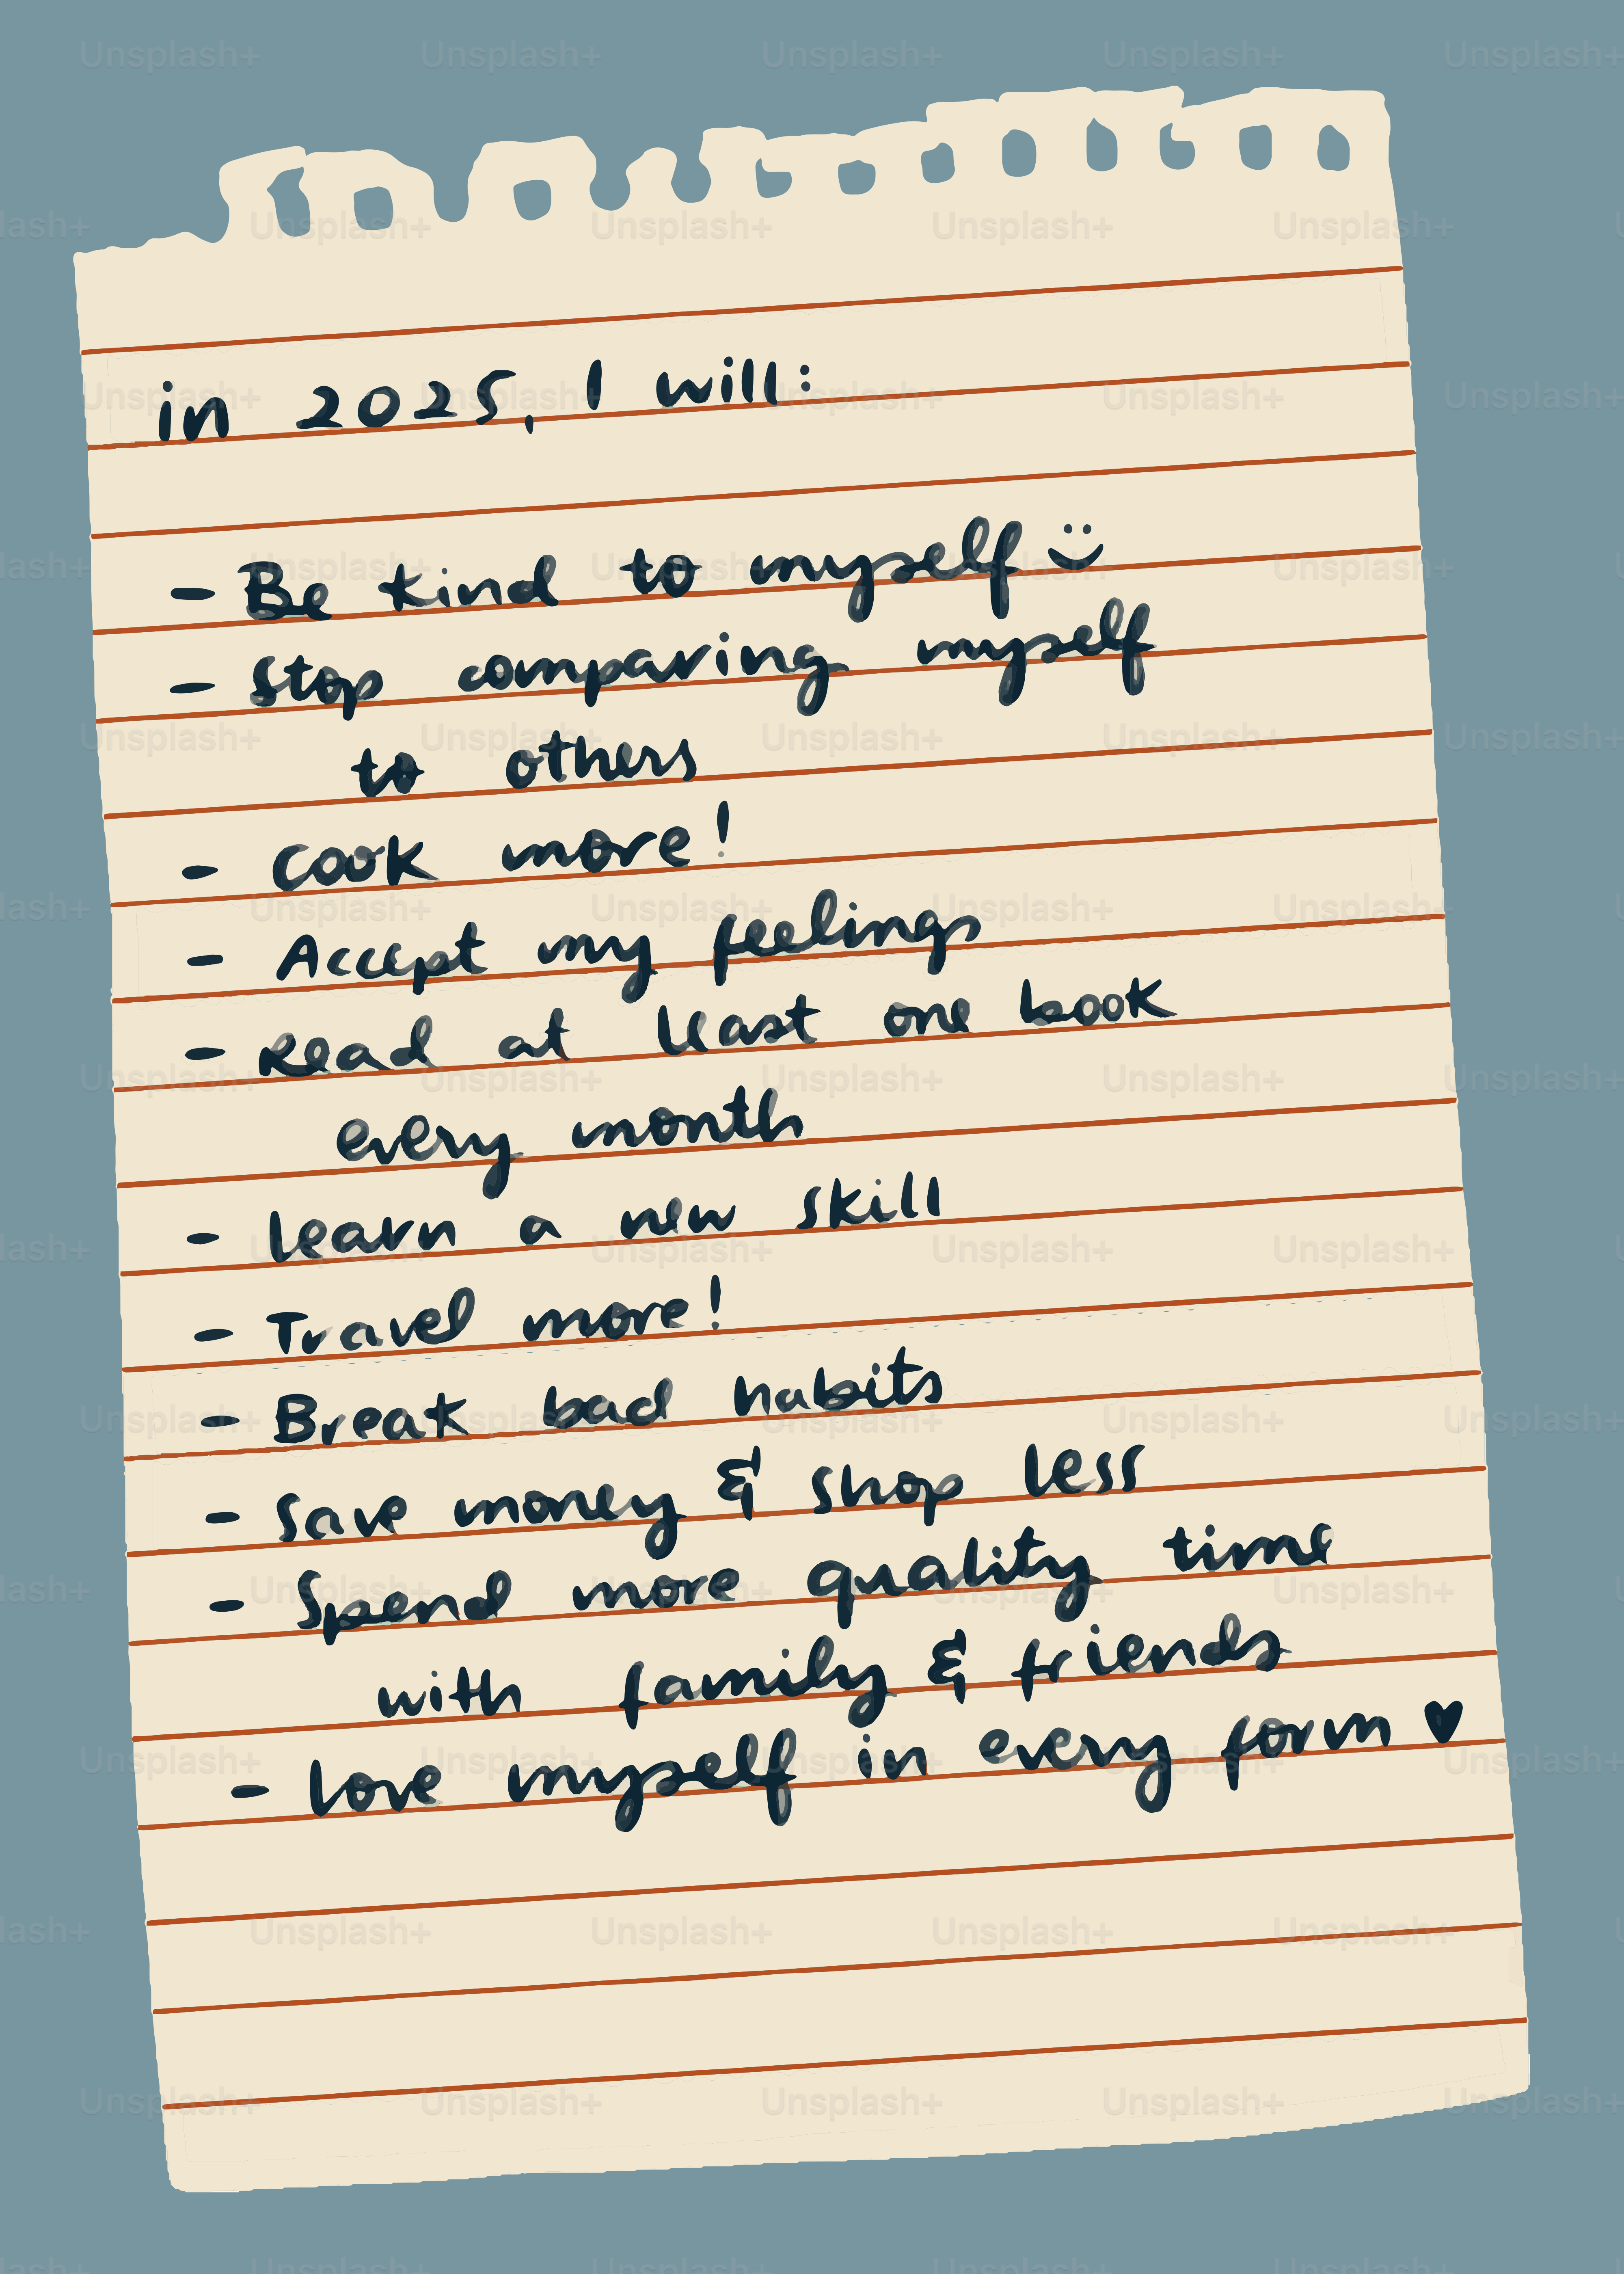 in 2025, I will:
- Be kind to myself
- Stop comparing myself
to others
- Cook more!
- Accept my feelings
- Read at least one book
every month
- learn a new skill
- Travel more!
- Break bad habits
- Save money & shop less
- Spend more quality time
with family & friends
- love myself in every form ♥
Unsplash+